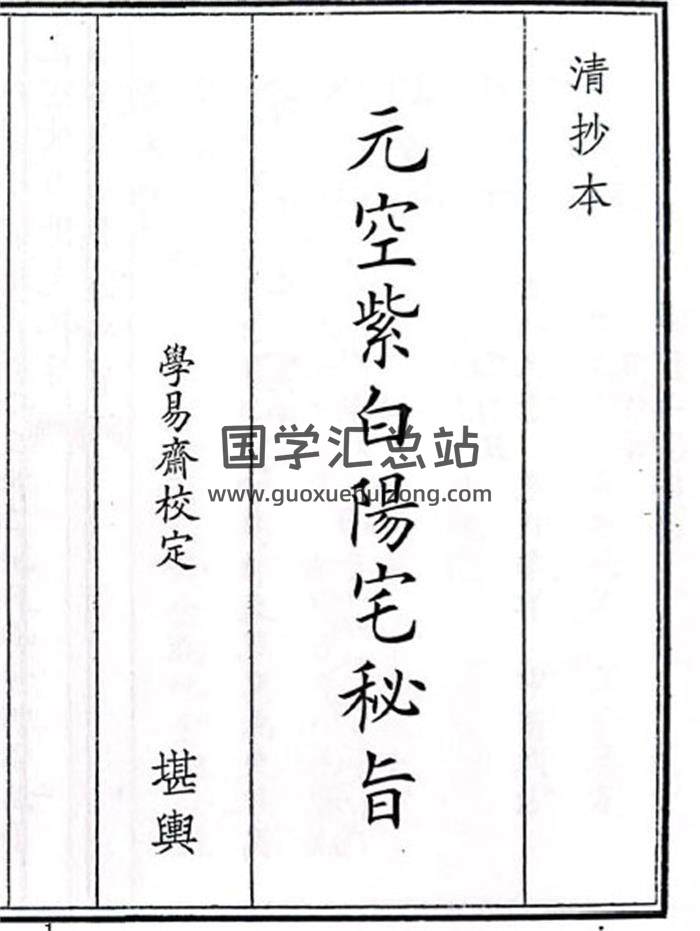 清抄本
元空紫白陽宅秘旨
學易齋校定
堪輿
国学汇总站
www.guoxuehuizong.com
1